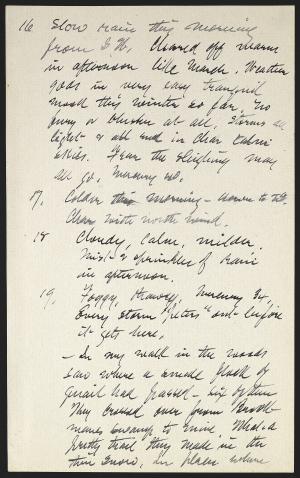 16 Slow rain this morning
from S.W. Cleared off warm
in afternoon like March. Weather
gods in very easy tranquil
mood this winter so far. No
fury or bluster at all. Storms are
light & all end in clear calm
skies. Fear the sleighing may
all go. Mercury 40.
17, Colder this morning – down to
Clear with north wind.
18 Cloudy, calm, milder.
Mist & sprinkles of rain
in afternoon.
19, Foggy, thawy, Mercury 34,
Every storm "peters" out before
it gets here.
– In my walk in the woods
saw where a small flock of
quail had passed – six of them
They crossed over from
swamp to mine. What a
pretty trail they made in the
thin snow, in places where